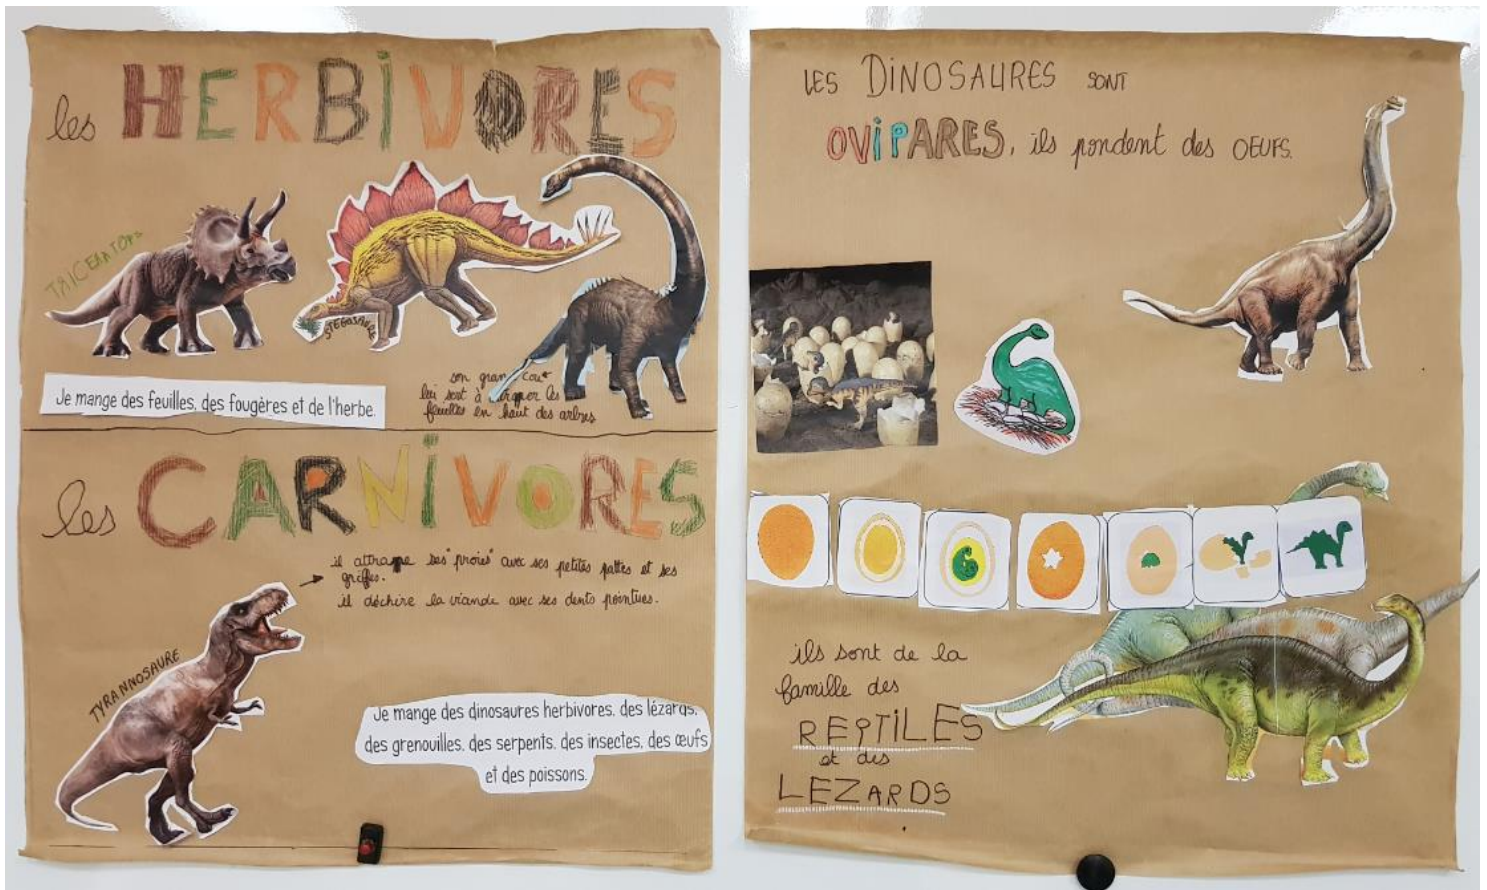 les HERBIVORES
TRICERATOPS
STEGOSAURE
Je mange des feuilles, des fougères et de l'herbe.
son grand cou
lui sert à les
feuilles en haut des arbres
les CARNIVORES
il attrape ses "proies" avec ses petites pattes et ses
griffes.
il déchire la viande avec ses dents pointues.
TYRANNOSAURE
Je mange des dinosaures herbivores, des lézards,
des grenouilles, des serpents, des insectes, des œufs
et des poissons.
LES DINOSAURES SONT
OVIPARES, ils pondent des OEUFS.
ils sont de la
famille des
REPTILES
et des
LEZARDS